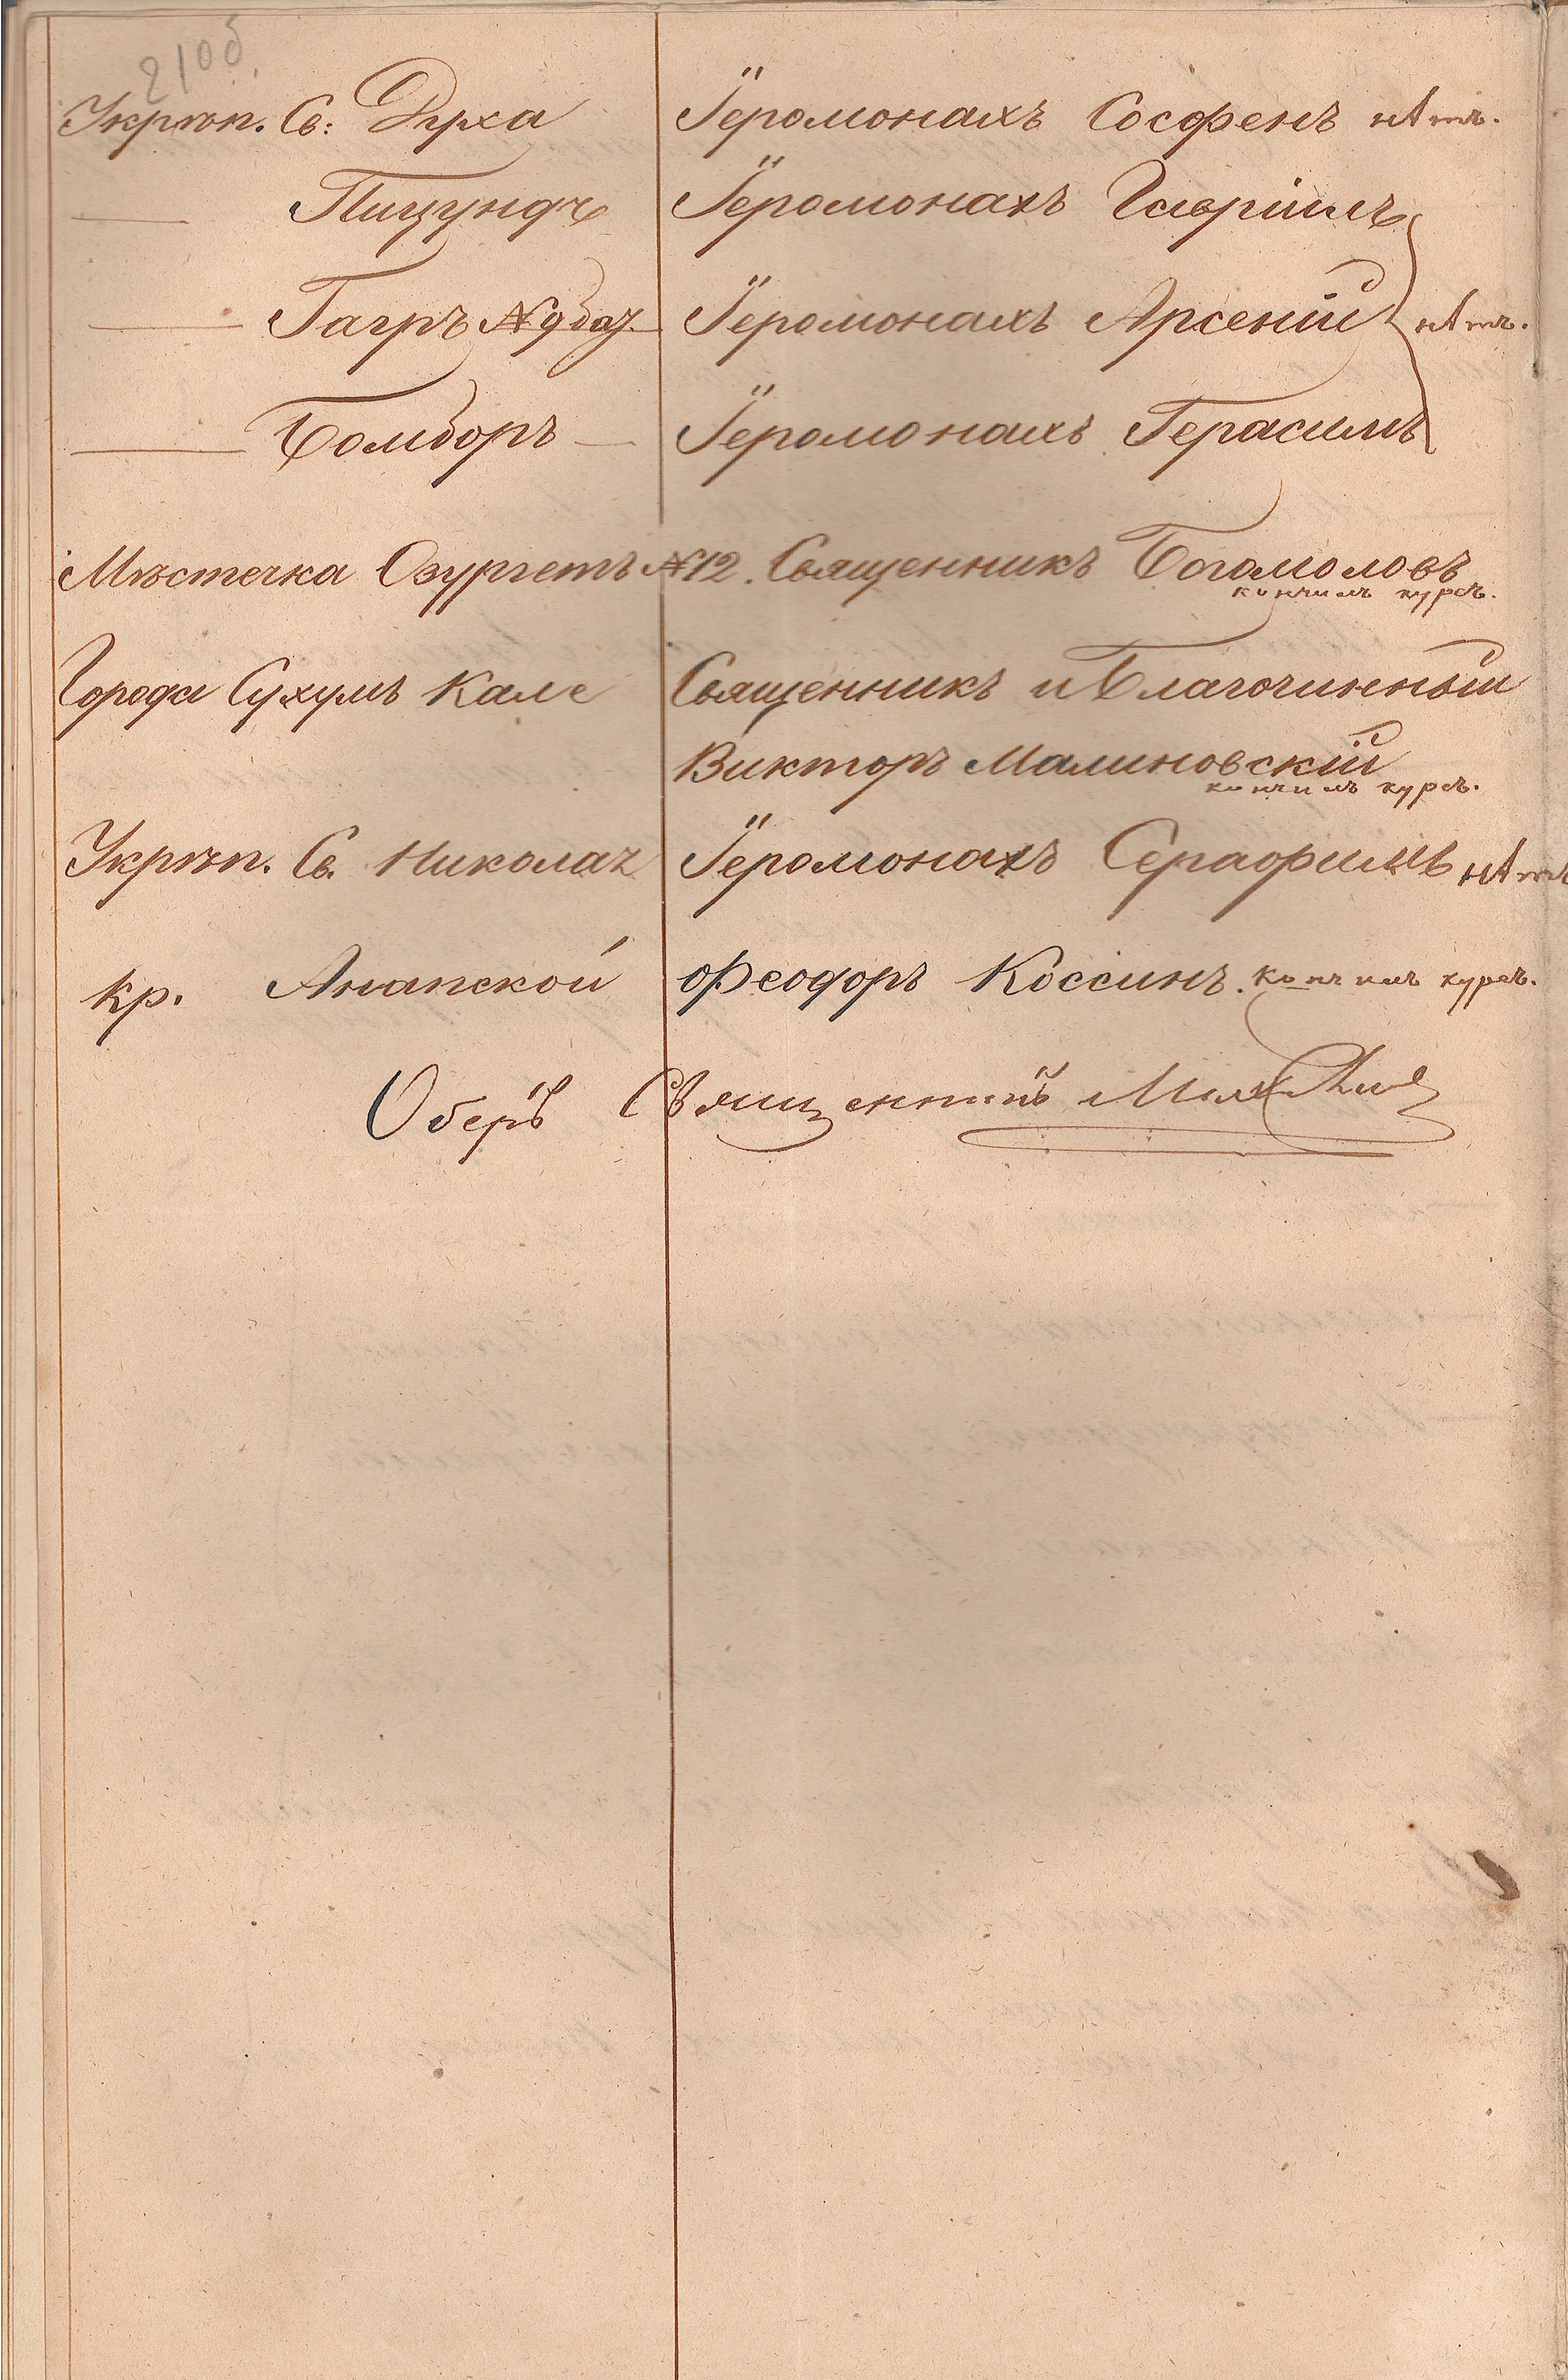 210б
Укрѣп. Св: Духа Іеромонахъ Сосфенъ нѣтъ.
Пицундъ Іеромонахъ Гавріилъ
Гагръ №9 баз. Іеромонахъ Арсеній нѣтъ.
Бомборъ Іеромонахъ Герасимъ
Мѣстечка Озургетъ №12. Священникъ Богомоловъ
кончилъ курсъ.
Города Сухумъ Кале Священникъ и Благочинный
Викторъ Малиновскій
кончилъ курсъ.
Укрѣп. Св. Николая Іеромонахъ Серафимъ нѣтъ
кр. Анапской Ѳеодоръ Коссинъ. кончилъ курсъ.
Оберъ Священникъ